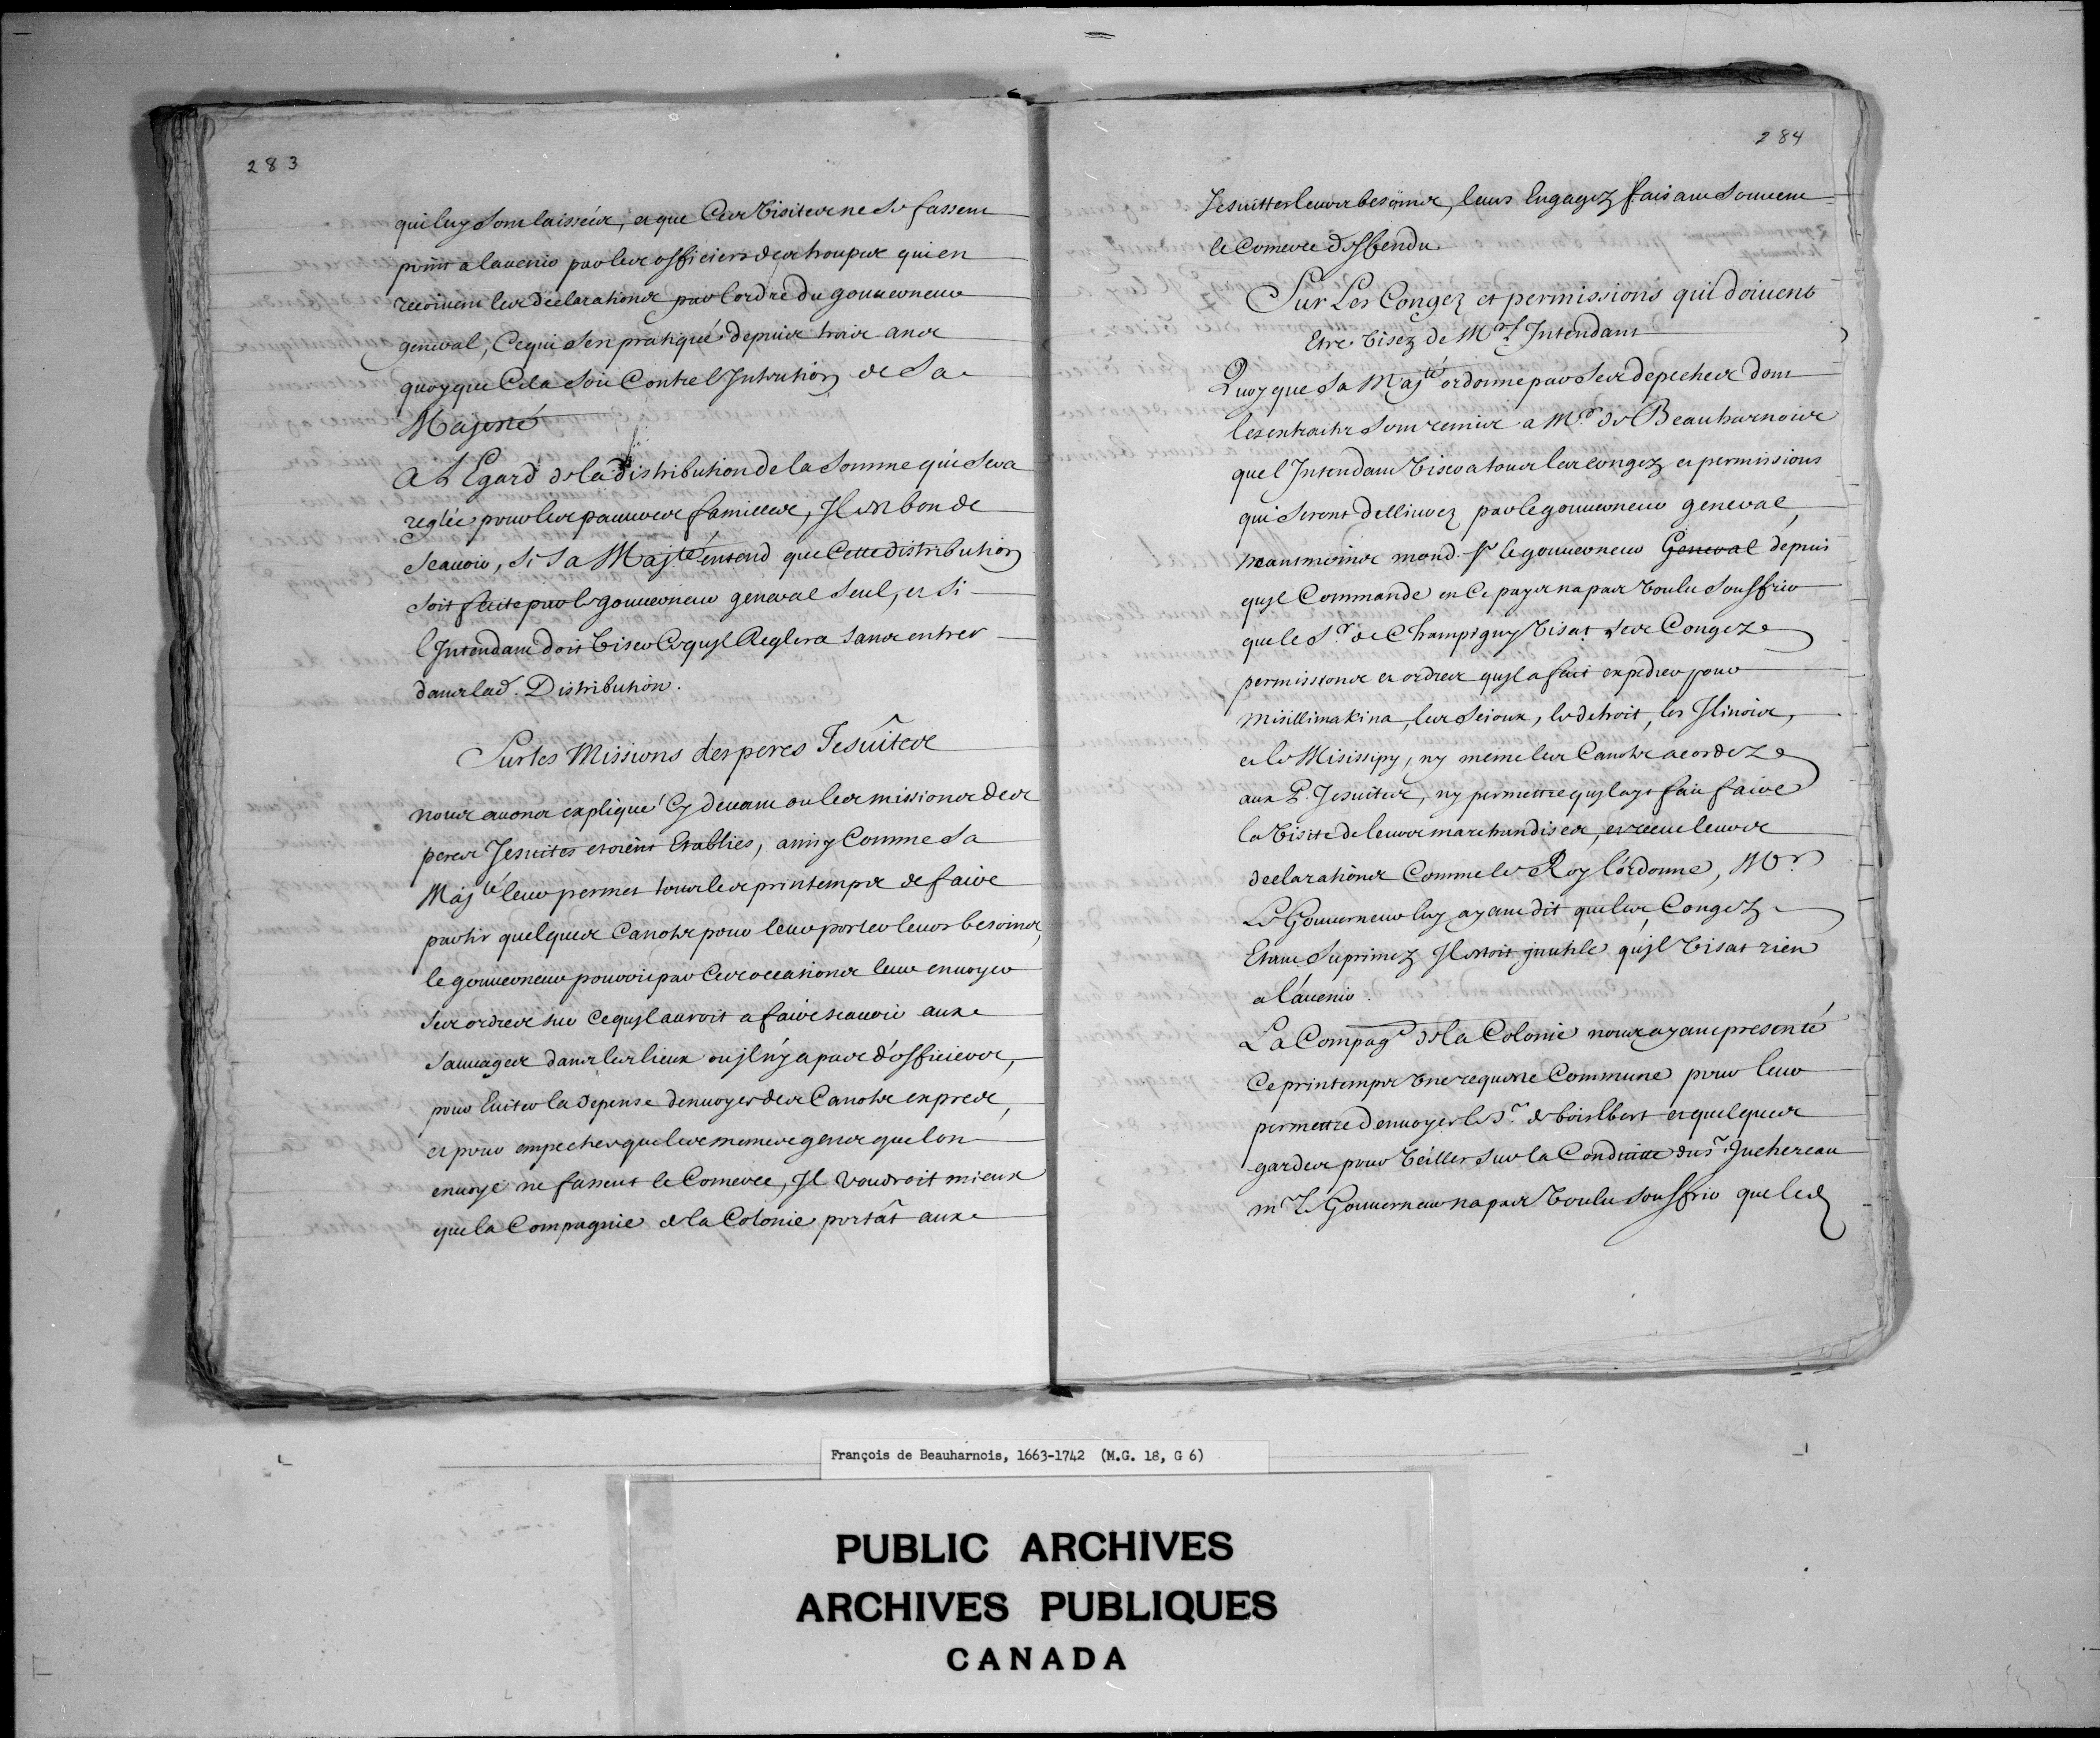 283
qui luy sont laisséés, et que Ces Visites ne se fassent
point a lauenir par les officiers des troupes qui en
recoiuent les declarations par l'ordre du gouuerneur
general, Ce qui s'est pratiqué depuis trois ans
quoyque Cela soit Contre l'Intention de Sa
Majesté
A L'Egard de la distribution de la somme qui sera
reglée pour les pauures familles, Il est bon de
scauoir, si Sa Maj.té entend que Cette distribution
soit faite par le gouuerneur general seul, et si
l'Intendant doit Viser Ce quil Reglera sans entrer
dans lad. Distribution.
Sur les Missions des peres Jesuîtes
nous auons expliqué Cy deuant ou les missions des
peres Jesuites etoient Establies, ainsy Comme Sa
Maj.té leur permet tous les printemps de faire
partir quelques Canots pour leur porter leurs besoins,
le gouuerneur pouroit par Ces occations leur enuoyer
ses ordres sur Ce quil auroit a faire scauoir aux
sauuages dans les lieux ou jl n'y a pas d'officiers,
pour Euiter la depense denuoyer des Canots exprés,
et pour empecher que les memes gens que lon
enuoye ne fassent le Comerce, Il voudroit mieux
que la Compagnie de la Colonie portât aux
284
Jesuittes leurs besoins, leurs Engagez faisant souuent
le Comerce deffendu
Sur Les Congez et permissions qui doiuent
Etre Visez de Mr. L'Intendant
Quoy que Sa Maj.té ordonne par ses depeches dont
les extraits sont remis a Mr. de Beauharnois
que l'Intendant Visera tous les congez et permissions
qui seront dellivrez par le gouuerneur general,
neantmoins mond. sr. le gouuerneur General depuis
quil Commande en Ce pays na pas Voulu souffrir
que le Sr. de Champigny Visat ses Congez
permissions et ordres quil a fait expedier pour
Misillimakina, les scioux, le detroit, les Ilinois,
et le Misissipy, ny meme les Canots acordez
aux P. Jesuites, ny permettre quil ayt fait faire
la Visite de leurs marchandises, et receu leurs
declarations Comme le Roy l'ordonne, Mr.
Le Gouuerneur luy ayant dit que les Congez
Etant Suprimez Il estoit jnutile quil Visat rien
a l'auenir.
La Compag.e de la Colonie nous ayant presenté
Ce printemps Vne requeste Commune pour leur
permettre denuoyer le Sr. de boislbert et quelques
gardes pour Veiller sur la Conduitte du sr. Juchereau
mr. Le Gouuerneur na pas Voulu souffrir que le d
François de Beauharnois, 1663-1742 (M.G. 18, G 6)
PUBLIC ARCHIVES
ARCHIVES PUBLIQUES
CANADA